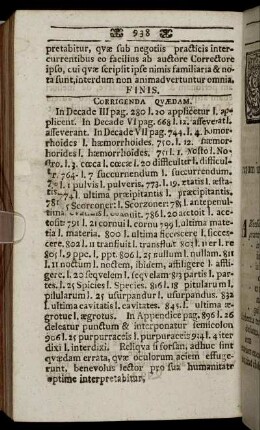 938
pretabitur, quæ sub negotiis practicis inter-
currentibus eo facilius ab auctore Correctore
ipso, cui quæ scripsit ipse nimis familiaria & no-
ta sunt, interdum non animadvertuntur omnia.
FINIS.
CORRIGENDA QVÆDAM.
In Decade III pag. 280 l. 20 applicetur l. ap-
plicent. In Decade VI pag. 668 l. 12. asseverat l.
asseverant. In Decade VII pag. 744. l. 4. hœmor-
rhoides l. hæmorrhoides. 750. l. 12.
horides l. hæmorrhoides. 751 l. 1. Nosto l. No-
stro. l. 3. cœca l. cæca l. 20 difficulter l. difficul-
r. 764. l. 7 succurrendum l. succurrendum.
l. 1 pulvis l. pulveris. 773. l. 19. ætatis l. æsta-
774 l. ultima præcipitantis l. præcipitantis.
78 Scorzoneri 781 l. antepenul-
tima l. evanuit. 786 l. 20 acetoit l. ace-
tosit 791 l. 21 cornui l. cornu 799 l. ultima mate-
tia l. materia. 800 l. ultima siccescere l. siccesce-
re. 802 l. 11 transfuit l. transfluit 803 l. 11 er l. re
805 l. 9 ppc, l. ppt. 806 l. 25 nullum l. nullam. 811
l. 11 noctum l. noctem, ibidem, affiligere l. affli-
gere. l. 20 seqvelem l. seqvelam 813 partis l. par-
tes. l. 25 Spicies l. Species. 816 l. 18 pitularum l.
pilularum l. 21 usurpandur l. usurpandus. 832
l. ultima cavitatis l. cavitates. 845. l. ultima æ-
grotus l. ægrotus. In Appendice pag. 896 l. 26
deleatur punctum & interponatur semicolon
906 l. 25 purpurraceis l. purpuraceis 914 l. 4 iter
dixi l. interdixi. Reliqva si forsan, adhuc sint
quædam errata, quæ oculorum aciem effuge-
runt, benevolus lector pro sua humanitate
optime interpretabitur,